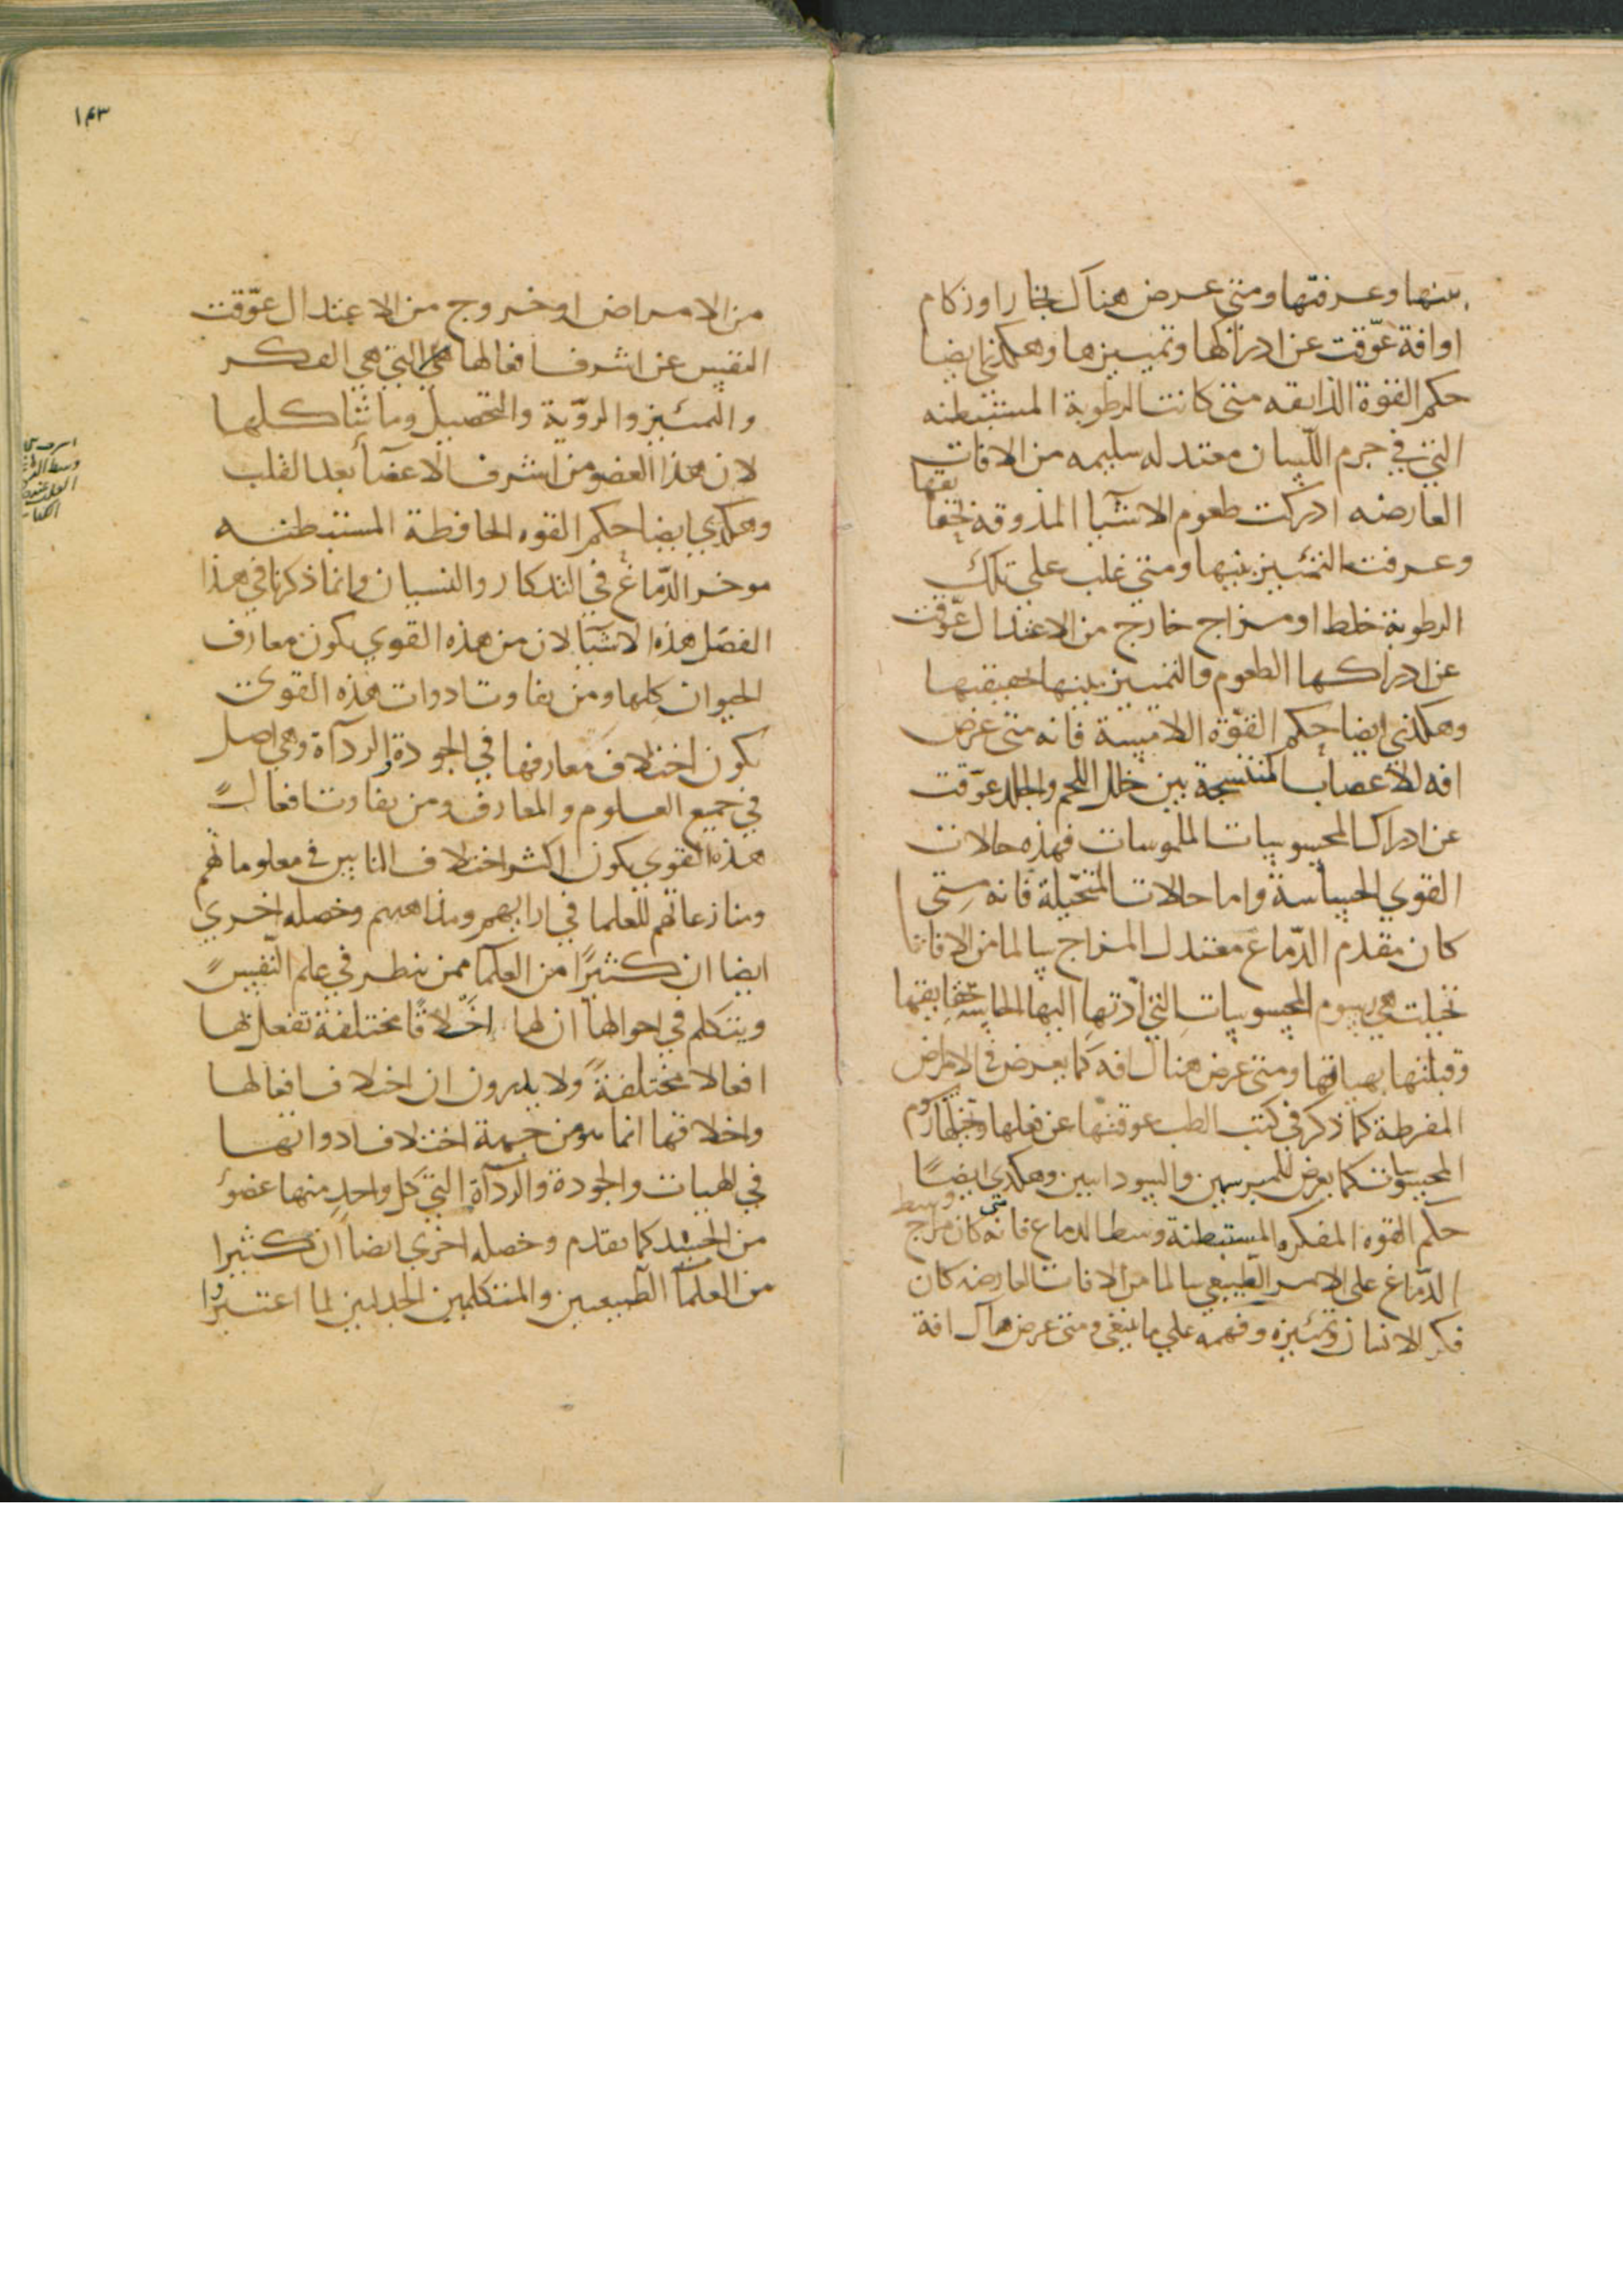 بينها وعرفتها ومتى عرض هناك بخار او زكام
او افة عوّقت عن ادراكها وتمييزها وهكذى ايضا
حكم القوة الذايقه متى كانت الرطوبة المستبطنه
التي في جرم اللسان معتدله سليمه من الافات
العارضه ادركت طعوم الاشيا المذوقة بحقا
يقها
وعرفت التمييز بينها ومتى غلب على تلك
الرطوبة خلط او مزاج خارج من الاعتدال عوّقت
عن ادراكها الطعوم والتمييز بينها حقيقتها
وهكذى ايضا حكم القوّة اللامسة فانه متى عرض
افه للاعصاب المنتسجة بين خلل اللحم والجلد عوّقت
عن ادراك المحسوسات الملموسات فهذه حالات
القوي الحساسة واما حالات المتخيّلة فانه متى
كان مقدم الدّماغ معتدل المزاج سالما من الافات
تخيلت هي رسوم المحسوسات التي أدتها اليها الحاسة بحقايقها
وقبلتها بهياتها ومتى عرض هناك افه كما يعرض في الامراض
المفرطة كما ذكر في كتب الطب عوقتها عن فعلها وتخيلها رسوم
المحسوسات كما يعرض للمبرسمين والسوداسين وهكذى ايضًا
حكم القوه المفكره المستبطنة وسط الدماغ فانه متى كان مزاج وسط
الدّماغ على الامر الطبيعي سالما من الافات العارضه كان
فكر الانسان وتمييزه وفهمه علي ما ينبغي ومتى عرض هناك افة
١٤٣
من الامراض او خروج من الاعتدال عوّقت
النفس عن اشرف افعالها التي هي الفكر
والتمييز والروّية والتحصيل وما شاكلها
لان هذا العضو من اشرف الاعضآ بعد القلب
وهكذي ايضا حكم القوه الحافظة المستبطنه
موخر الدّماغ في التذكار والنسيان وانما ذكرنا في هذا
الفصل هذه الاشيآ لان من هذه القوي يكون معارف
الحيوان كلها ومن تفاوت ادوات هذه القوى
يكون اختلاف معارفها في الجودة والردآة وهي اصل
في جميع العلوم والمعارف ومن تفاوت افعال
هذه القوي يكون اكثر اختلاف الناس في معلوماتهم
ومنازعاتهم للعلما في ارايهم ومذاهبهم وخصله اخري
ايضا ان كثيرًا من العلما ممن ينظر في علم النّفس
ويتكلم في احوالها ان لها اخلاقًا مختلفة تفعل بها
افعالا مختلفةً ولا يدرون ان اختلاف افعالها
واخلاقها انما هو من جهة اختلاف ادواتها
في الهيات والجودة والردآة التي كل واحدٍ منها عضوٌ
من الجسد كما تقدم وخصله اخرى ايضاً ان كثيرا
من العلمآ الطبيعيين والمتكلمين الجدليين لما اعتبروا